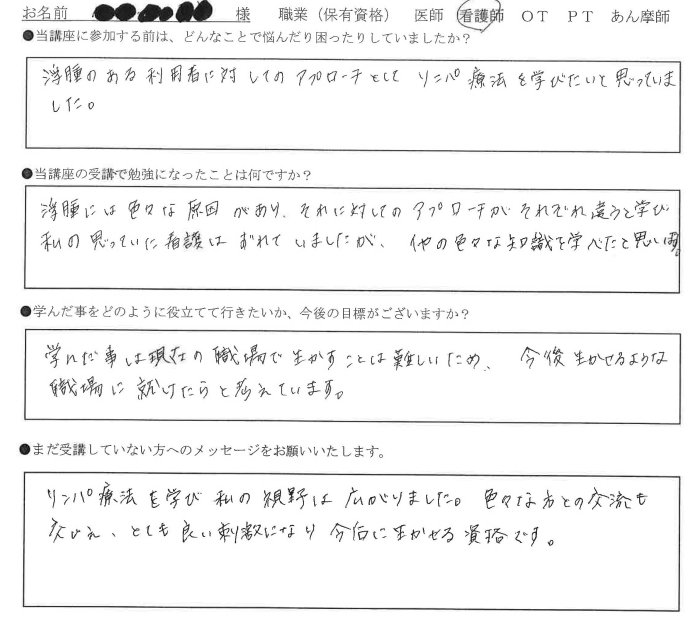 お名前 様 職業（保有資格） 医師 看護師 ＯＴ ＰＴ あん摩師
●当講座に参加する前は、どんなことで悩んだり困ったりしていましたか？
浮腫のある利用者に対してのアプローチとして リンパ療法を学びたいと思っていま
した。
●当講座の受講で勉強になったことは何ですか？
浮腫には色々な原因があり、それに対してのアプローチがそれぞれ違うと学び
私の思っていた看護はずれていましたが、他の色々な知識を学べたと思います。
●学んだ事をどのように役立てて行きたいか、今後の目標がございますか？
学んだ事は現在の職場で生かすことは難しいため、今後生かせるような
職場に就けたらと考えています。
●まだ受講していない方へのメッセージをお願いいたします。
リンパ療法を学び私の視野は広がりました。色々な方との交流も
交じえ、とても良い刺激になり今后に生かせる資格です。